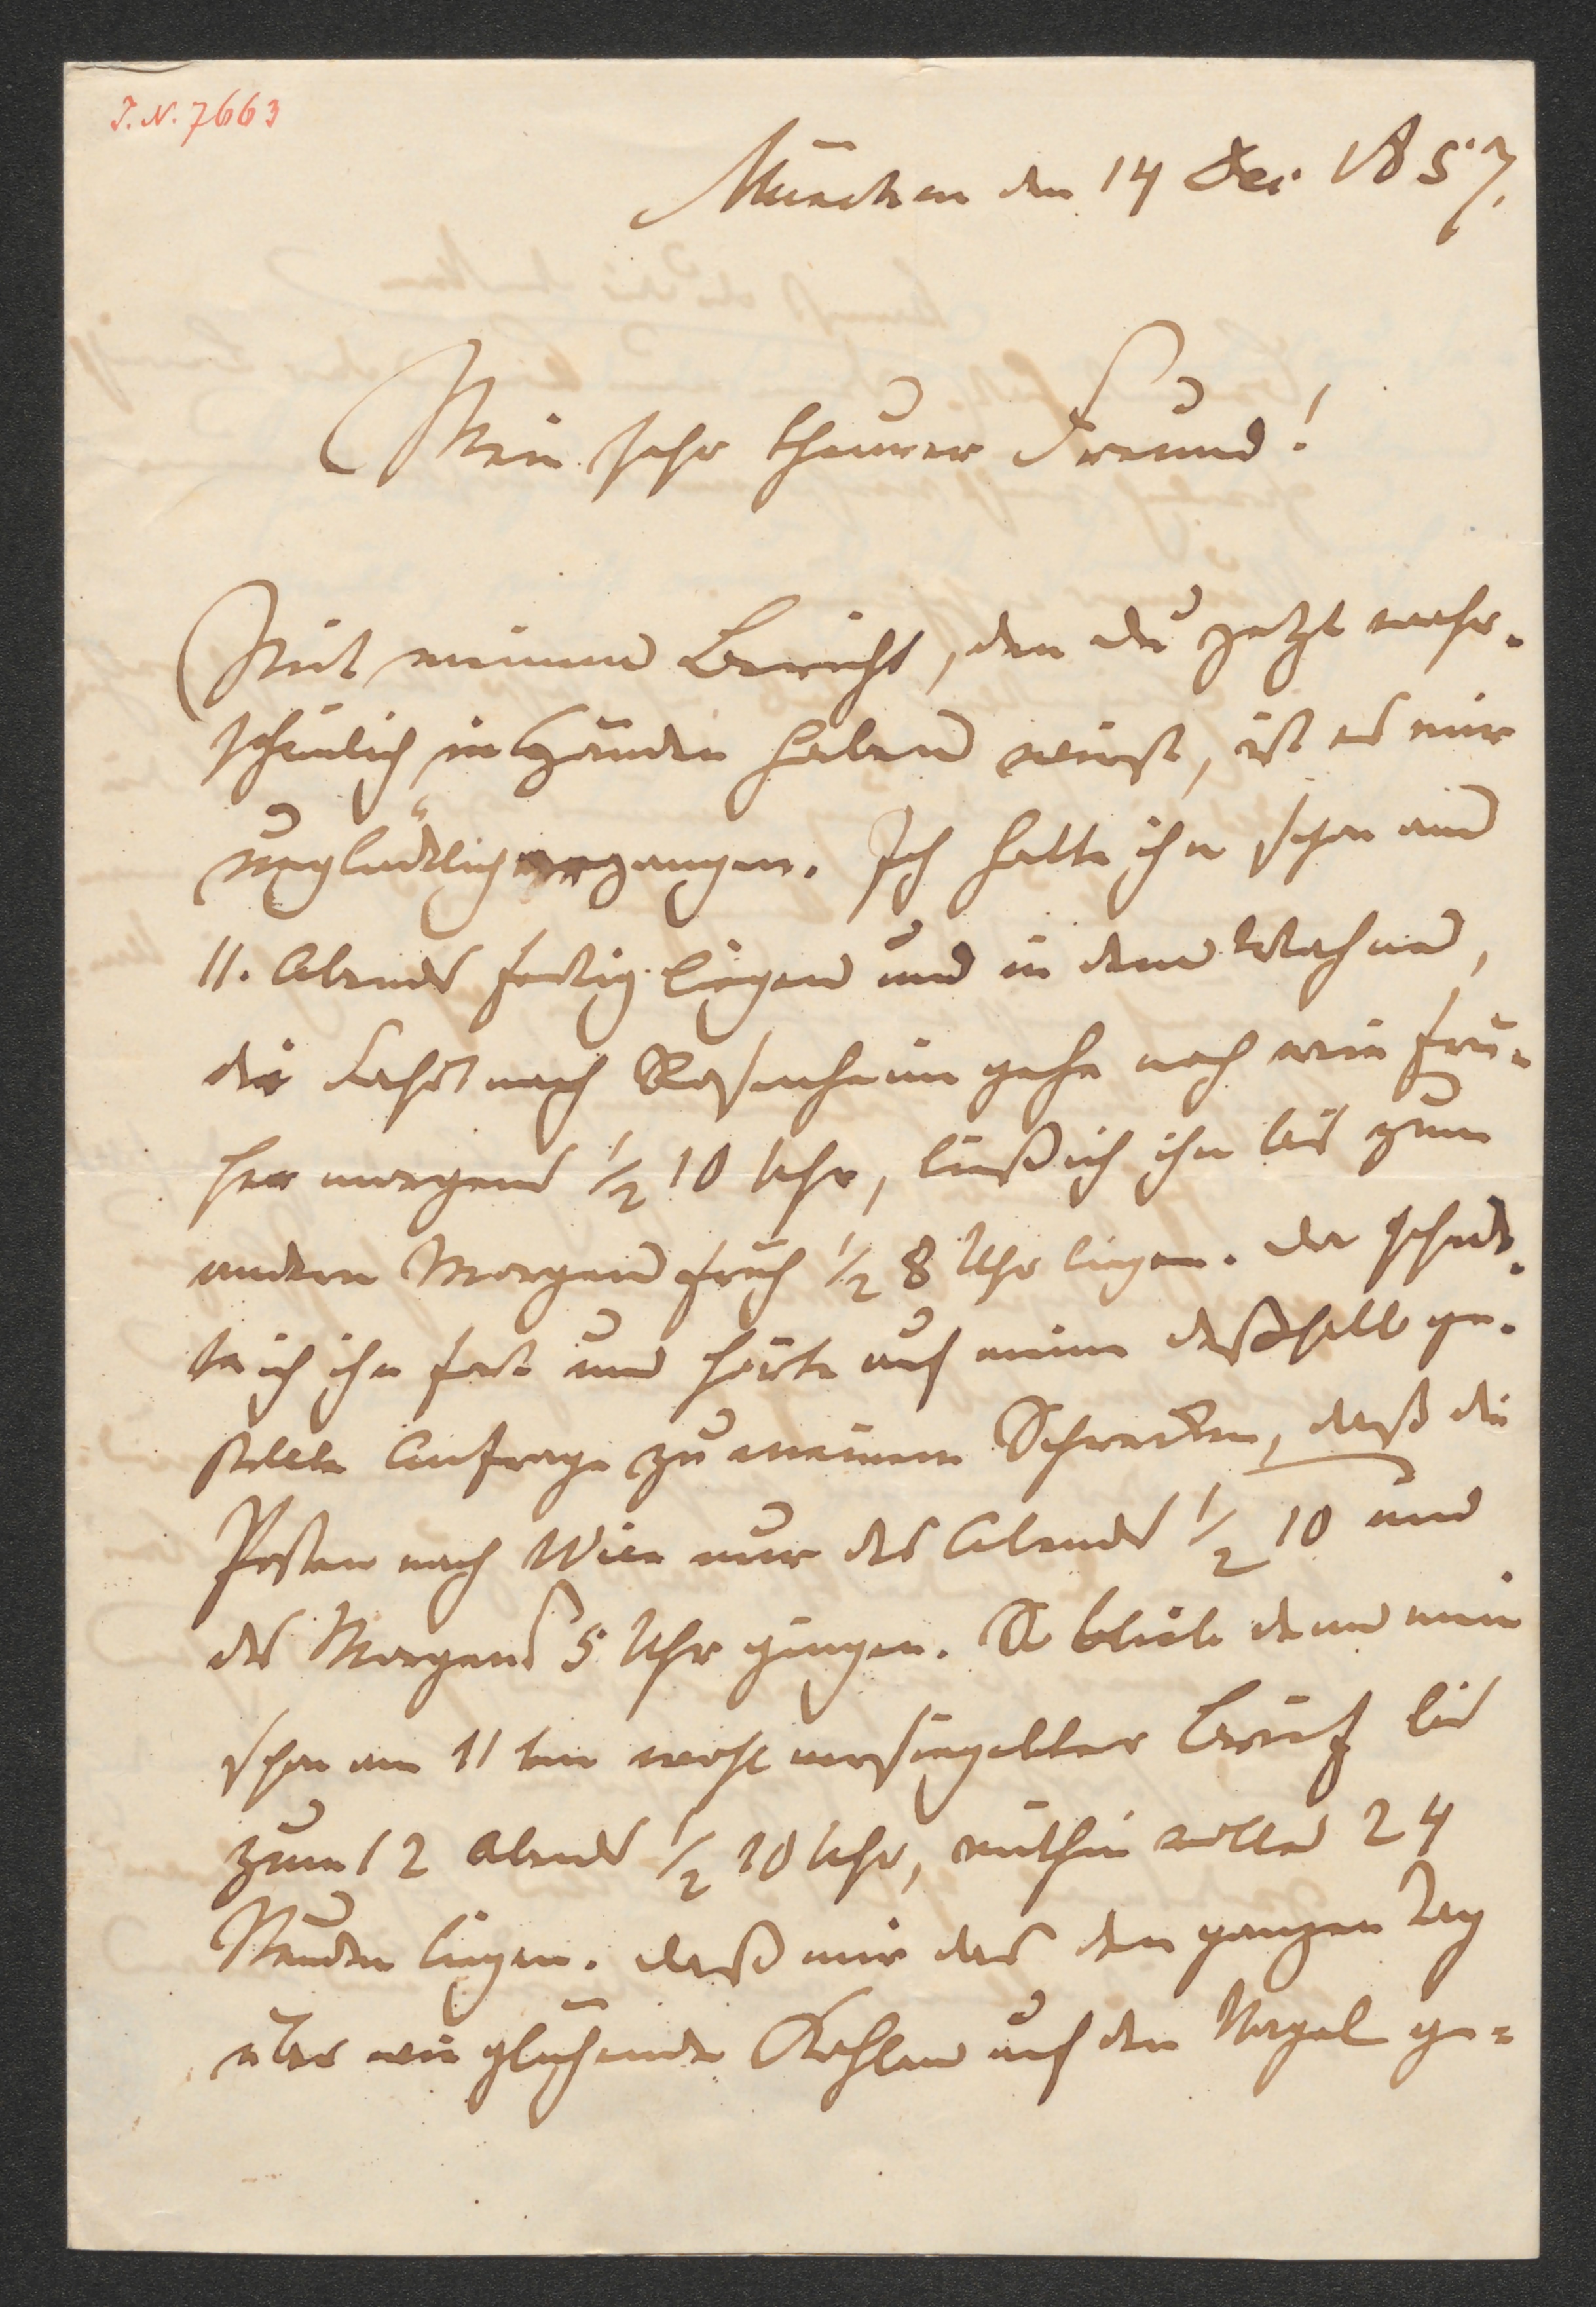 I. N. 7663
München den 14 Dec 1857.
Mein sehr theurer Freund!
Mit meinem Bericht, den du jetzt wahr-
scheinlich in Händen haben wirst, ist es mir
unglücklich ergangen. Ich hatte ihn schon am
11. Abends fertig liegen und in dem Wahne,
die Fahrt nach Rosenheim gehe noch wie frü-
her morgens ½ 10 Uhr, ließ ich ihn bis zum
andern Morgen früh ½ 8 Uhr liegen. Da schick-
te ich ihn fort und hörte auf meine deßhalb ge-
stellte Anfrage zu meinem Schrecken, daß die
Posten nach Wien nur des Abends ½ 10 und
des Morgens 5 Uhr gingen. So blieb denn mein
schon am 11ten wohl versiegelter Brief bis
zum 12 Abends ½ 10 Uhr, mithin volle 24
Stunden liegen. Daß mir das den ganzen Tag
über wie glühende Kohlen auf den Nagel ge-